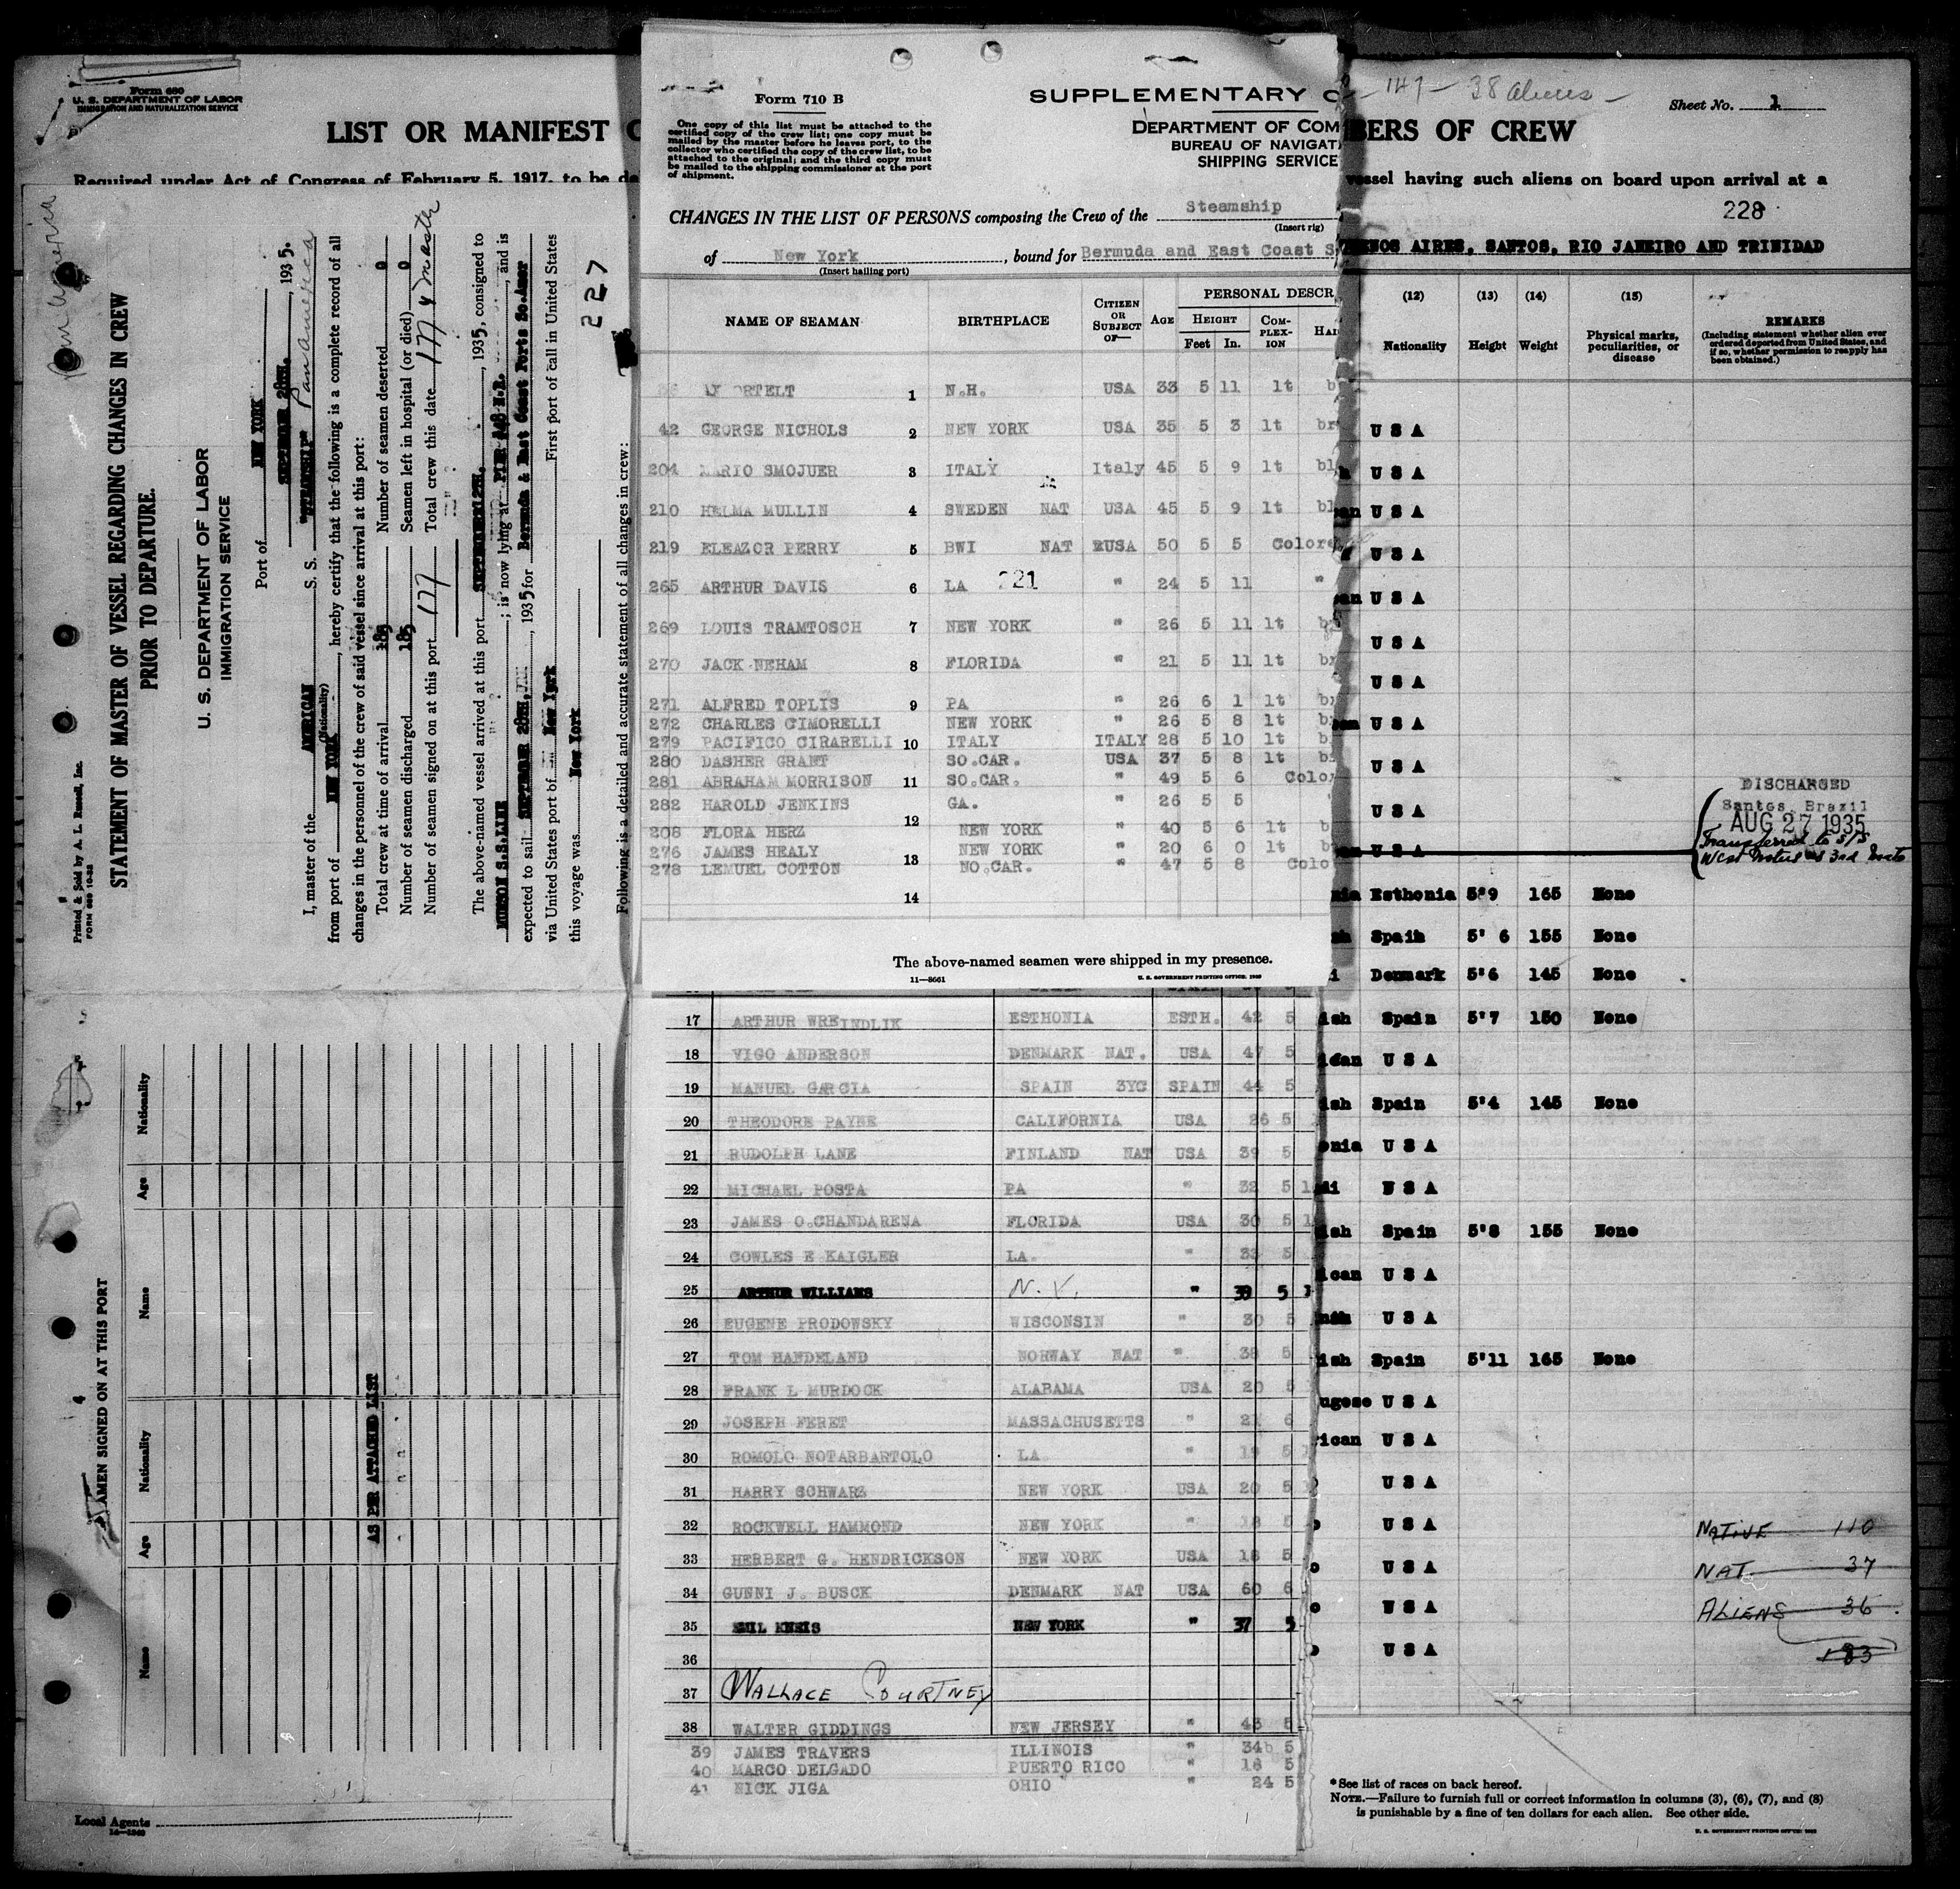 Form 680
U. S. DEPARTMENT OF LABOR
IMMIGRATION AND NATURALIZATION SERVICE
LIST OR MANIFEST
Required under Act of Congress of February 5, 1917, to be de
STATEMENT OF MASTER OF VESSEL REGARDING CHANGES IN CREW
PRIOR TO DEPARTURE.
U. S. DEPARTMENT OF LABOR
IMMIGRATION SERVICE
Port of NEW YORK
SEPTEMBER 28TH. , 1935.
I, master of the AMERICAN S. S. "STEAMSHIP" Pan America
(Nationality)
from port of NEW YORK , hereby certify that the following is a complete record of all
changes in the personnel of the crew of said vessel since arrival at this port:
Total crew at time of arrival 185 Number of seamen deserted 0
Number of seamen discharged 185 Seamen left in hospital (or died) 0
Number of seamen signed on at this port 177 Total crew this date 177 & master
The above-named vessel arrived at this port SEPTEMBER 12TH. , 1935, consigned to
MUNSON S.S.LINE ; is now lying at PIER 448 N.R. , and is
expected to sail SEPTEMBER 28TH, , 1935 for Bermuda & East Coast Ports So.Amer
via United States port of New York First port of call in United States
this voyage was New York
227
Following is a detailed and accurate statement of all changes in crew:
Printed & Sold by A. L. Russell, Inc.
SEAMEN SIGNED ON AT THIS PORT
Name Age Nationality Name Age Nationality
AS PER ATTACHED LIST
Local Agents
Form 710 B
One copy of this list must be attached to the
certified copy of the crew list; one copy must be
mailed by the master before he leaves port, to the
collector who certified the copy of the crew list, to be
attached to the original; and the third copy must
be mailed to the shipping commissioner at the port
of shipment.
SUPPLEMENTARY C
DEPARTMENT OF COM
BUREAU OF NAVIGAT
SHIPPING SERVICE
CHANGES IN THE LIST OF PERSONS composing the Crew of the Steamship
(Insert rig)
of New York , bound for Bermuda and East Coast S
(Insert hailing port)
NAME OF SEAMAN BIRTHPLACE CITIZEN OR SUBJECT OF— AGE PERSONAL DESCR
HEIGHT Feet In. COM-PLEX-ION HAI
ORTELT 1 N.H. USA 33 5 11 lt b
42 GEORGE NICHOLS 2 NEW YORK USA 35 5 3 lt br
204 MARIO SMOJUER 3 ITALY Italy 45 5 9 lt bl
210 HELMA MULLIN 4 SWEDEN NAT USA 45 5 9 lt bl
219 ELEAZOR PERRY 5 BWI NAT USA 50 5 5 Colore
265 ARTHUR DAVIS 6 LA 221 " 24 5 11 "
269 LOUIS TRAMTOSCH 7 NEW YORK " 26 5 11 lt b
270 JACK NEHAM 8 FLORIDA " 21 5 11 lt br
271 ALFRED TOPLIS 9 PA " 26 6 1 lt b
272 CHARLES CIMORELLI NEW YORK " 26 5 8 lt b
279 PACIFICO CIRARELLI 10 ITALY ITALY 28 5 10 lt b
280 DASHER GRANT SO.CAR. USA 37 5 8 lt b
281 ABRAHAM MORRISON 11 SO.CAR. " 49 5 6 Colo
282 HAROLD JENKINS GA. " 26 5 5
12
208 FLORA HERZ NEW YORK " 40 5 6 lt b
276 JAMES HEALY NEW YORK " 20 6 0 lt b
278 LEMUEL COTTON 13 NO.CAR. " 47 5 8 Colo
14
The above-named seamen were shipped in my presence.
11—8661 U. S. GOVERNMENT PRINTING OFFICE
17 ARTHUR WREINDLIK ESTHONIA ESTH. 42 5
18 VIGO ANDERSON DENMARK NAT. USA 47 5
19 MANUEL GARCIA SPAIN 3YC SPAIN 44 5
20 THEODORE PAYNE CALIFORNIA USA 26 5
21 RUDOLPH LANE FINLAND NAT USA 39 5
22 MICHAEL POSTA PA " 32 5
23 JAMES O.CHANDARENA FLORIDA USA 30 5
24 COWLES E KAIGLER LA. " 33 5
25 ARTHUR WILLIAMS N.Y. " 39 5
26 EUGENE PRODOWSKY WISCONSIN " 30 5
27 TOM HANDELAND NORWAY NAT " 38 5
28 FRANK L MURDOCK ALABAMA USA 20 5
29 JOSEPH FERET MASSACHUSETTS " 21 6
30 ROMOLO NOTARBARTOLO LA " 19 5
31 HARRY SCHWARZ NEW YORK USA 20 5
32 ROCKWELL HAMMOND NEW YORK " 18 5
33 HERBERT G. HENDRICKSON NEW YORK USA 18 5
34 GUNNI J. BUSCK DENMARK NAT USA 60 6
35 EMIL KNEIS NEW YORK " 37 5
36
37 WALLACE COURTNEY
38 WALTER GIDDINGS NEW JERSEY " 43 5
39 JAMES TRAVERS ILLINOIS " 34 5
40 MARCO DELGADO PUERTO RICO " 18 5
41 NICK JIGA OHIO " 24 5
147 — 38 aliens —
Sheet No. 1
BERS OF CREW
vessel having such aliens on board upon arrival at a
228
ENOS AIRES, SANTOS, RIO JANEIRO AND TRINIDAD
(12) (13) (14) (15)
Nationality Height Weight Physical marks, peculiarities, or disease
REMARKS
(Including statement whether alien ever
ordered deported from United States, and
if so, whether permission to reapply has
been obtained.)
U S A
U S A
an U S A
U S A
an U S A
U S A
U S A
U S A
U S A
U S A
U S A
DISCHARGED
Santos Brazil
AUG 27 1935
Transferred to S/S
West Notus as 3rd Mate
Esthonia 5'9 165 None
Spain 5' 6 155 None
Denmark 5'6 145 None
ish Spain 5'7 150 None
U S A
ish Spain 5'4 145 None
onia U S A
U S A
ish Spain 5'8 155 None
ican U S A
U S A
ish Spain 5'11 165 None
ugese U S A
rican U S A
U S A
U S A
U S A
U S A
U S A
NATIVE 110
NAT. 37
ALIENS 36
183
*See list of races on back hereof.
NOTE.—Failure to furnish full or correct information in columns (3), (6), (7), and (8)
is punishable by a fine of ten dollars for each alien. See other side.
U. S. GOVERNMENT PRINTING OFFICE